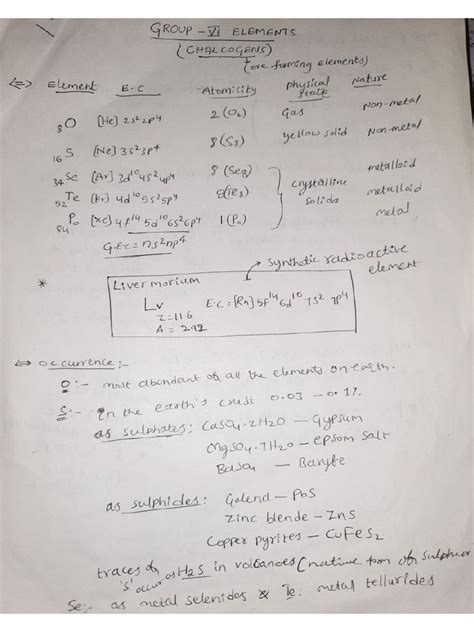 GROUP - VI ELEMENTS
(CHALCOGENS)
(ore forming elements)
<=> Element E.C Atomicity physical state Nature
8O [He] 2s²2p⁴ 2 (O₂) Gas Non-metal
16S [Ne] 3s²3p⁴ 8 (S₈) yellow solid Non-metal
34Se [Ar] 3d¹⁰4s²4p⁴ 8 (Se₈) metalloid
52Te [Kr] 4d¹⁰5s²5p⁴ 8(Te₈) crystalline solids metalloid
84Po [Xe] 4f¹⁴5d¹⁰6s²6p⁴ 1 (Po) metal
G.E.C = ns²np⁴
* → synthetic radioactive element
Livermorium
Lv E.C = [Rn] 5f¹⁴6d¹⁰7s²7p⁴
Z=116
A = 292
⇔ occurrence:-
O:- most abundant of all the elements on earth.
S:- In the earth's crust 0.03 - 0.1%.
as sulphates: CaSO4.2H2O - Gypsum
MgSO4.7H2O - epsom salt
BaSO4 - Baryte
as sulphides: Galend - PbS
Zinc blende - ZnS
Copper pyrites - CuFeS₂
traces of 'S' occur as H2S in volcanoes (native of sulphur
Se:- as metal selenides & Te: metal tellurides